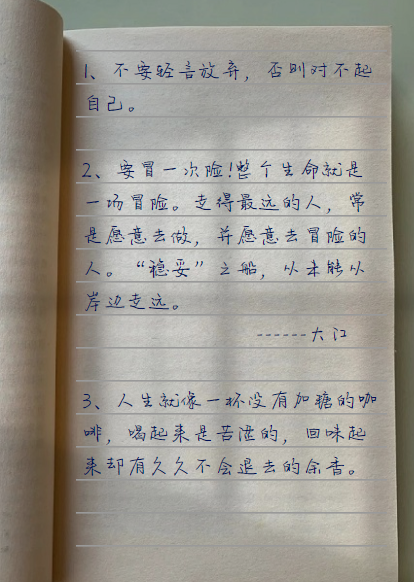 1、不要轻言放弃，否则对不起
自己。
2、要冒一次险!整个生命就是
一场冒险。走得最远的人，常
是愿意去做，并愿意去冒险的
人。“稳妥”之船，从未能从
岸边走远。
------大江
3、人生就像一杯没有加糖的咖
啡，喝起来是苦涩的，回味起
来却有久久不会退去的余香。